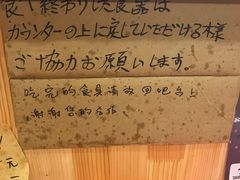 食べ終わりした食器は
カウンターの上に戻していただける様
ご協力お願いします。
吃完的食具请放回吧台上
谢谢您的合作。
元